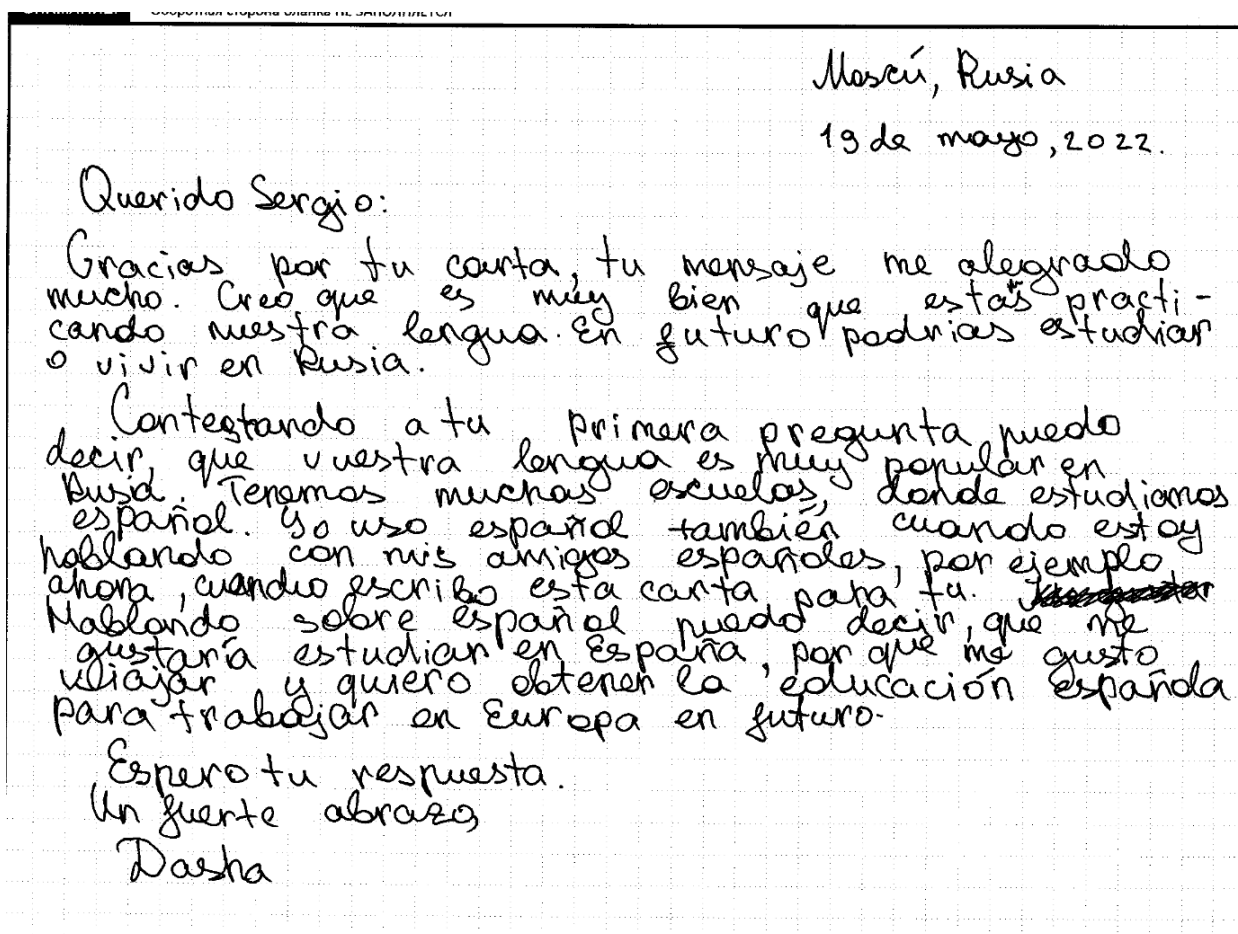 Оборотная сторона бланка НЕ ЗАПОЛНЯЕТСЯ
Moscú, Rusia
19 de mayo, 2022.
Querido Sergio:
Gracias por tu carta, tu mensaje me alegrado
mucho. Creo que es muy bien que estás practi-
cando nuestra lengua. En futuro podrías estudiar
o vivir en Rusia.
Contestando a tu primera pregunta puedo
decir, que vuestra lengua es muy popular en
Rusia. Tenemos muchas escuelas, donde estudiamos
español. Yo uso español también cuando estoy
hablando con mis amigos españoles, por ejemplo
ahora, cuando escribo esta carta para tu.
Hablando sobre español puedo decir, que me
gustaría estudiar en España, por que me gusto
viajar y quiero obtener la educación española
para trabajar en Europa en futuro.
Espero tu respuesta.
Un fuerte abrazo,
Dasha